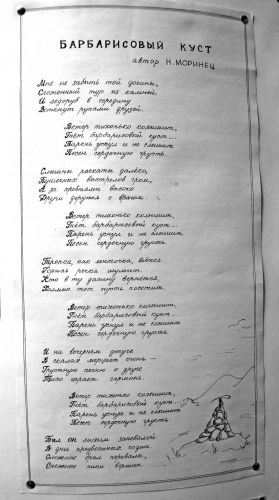 БАРБАРИСОВЫЙ КУСТ
автор Н.МОРИНЕЦ
Мне не забыть той долины,
Сложенный тур из камней.
И ледоруб в середину
Воткнут руками друзей.
Ветер тихонько колышит,
Гнёт барбарисовый куст...
Парень уснул и не слышит
Песен сердечную грусть.
Слышны раскаты далёко,
Пушечных выстрелов гром,
А за хребтами высоко
Други дерутся с врагом.
Ветер тихонько колышит,
Гнёт барбарисовый куст...
Парень уснул и не слышит
Песен сердечную грусть
Тропка, как ленточка, вьётся
Горная речка шумит.
Кто в ту долину вернётся,
Холмик тот пусть посетит.
Ветер тихонько колышит,
Гнёт барбарисовый куст...
Парень уснул и не слышит
Песен сердечную грусть.
И на вечернем досуге
В скалах мерцает огонь —
Грустную песню о друге
Тихо играет гармонь.
Ветер тихонько колышит,
Гнёт барбарисовый куст...
Парень уснул и не слышит
Песен сердечную грусть.
Был он милым запевалой
В дни предвоенных годин.
Снежные брал перевалы,
Снежные пики вершин.